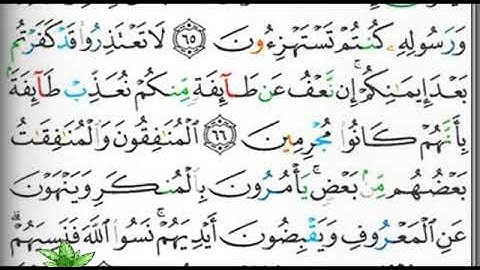 وَرَسُولِهِۦ كُنتُمْ تَسْتَهْزِءُونَ ٦٥ لَا تَعْتَذِرُوا۟ قَدْ كَفَرْتُم
بَعْدَ إِيمَـٰنِكُمْ ۚ إِن نَّعْفُ عَن طَآئِفَةٍ مِّنكُمْ نُعَذِّبْ طَآئِفَةًۢ
بِأَنَّهُمْ كَانُوا۟ مُجْرِمِينَ ٦٦ ٱلْمُنَـٰفِقُونَ وَٱلْمُنَـٰفِقَـٰتُ
بَعْضُهُم مِّنۢ بَعْضٍ ۚ يَأْمُرُونَ بِٱلْمُنكَرِ وَيَنْهَوْنَ
عَنِ ٱلْمَعْرُوفِ وَيَقْبِضُونَ أَيْدِيَهُمْ ۚ نَسُوا۟ ٱللَّهَ فَنَسِيَهُمْ ۗ